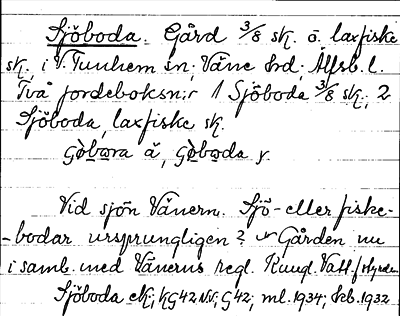 Sjöboda. Gård 3/8 sk. o. laxfiske
sk., i V. Tunhem sn; Väne hd; Älfsb. l.
Två jordeboksn:r 1 Sjöboda 3/8 sk, 2
Sjöboda, laxfiske sk.
Vid sjön Vänern. Sjö- eller fiske-
-bodar ursprungligen? Gården nu
i samb. med Vänerns regl. Kungl. Vatt.f.styrelsen
Sjöboda EK; KG42NV; G42; ml. 1934; Jrb. 1932